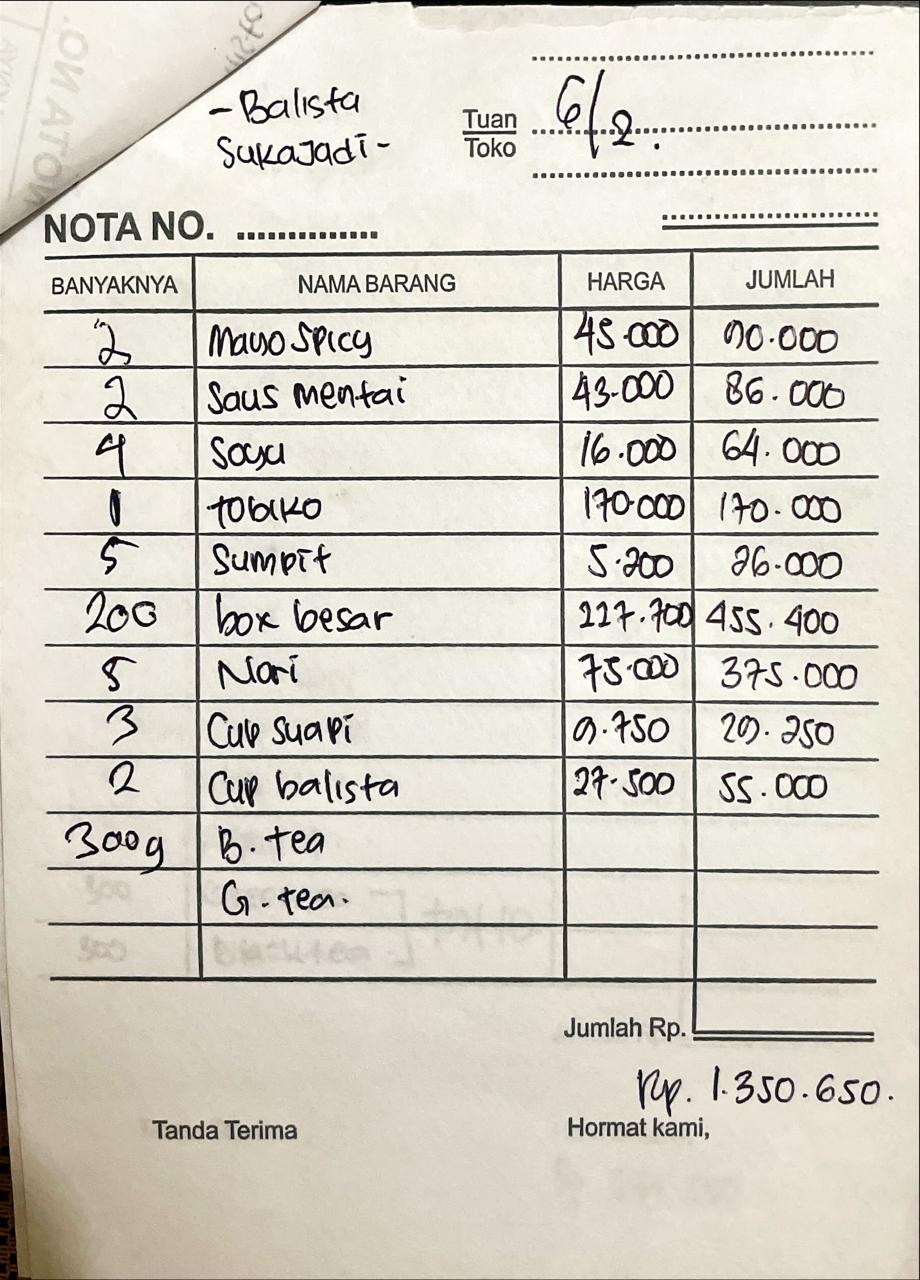 - Balista
Sukajadi -
Tuan
Toko
6/2.
NOTA NO. ..............
BANYAKNYA NAMA BARANG HARGA JUMLAH
2 Mayo Spicy 45.000 90.000
2 Saus mentai 43.000 86.000
4 Soya 16.000 64.000
1 tobiko 170.000 170.000
5 Sumpit 5.200 26.000
200 box besar 227.700 455.400
5 Nori 75.000 375.000
3 Cup suapi 9.750 29.250
2 Cup balista 27.500 55.000
300g B. tea
G. tea.
Jumlah Rp.
Rp. 1.350.650.
Tanda Terima Hormat kami,